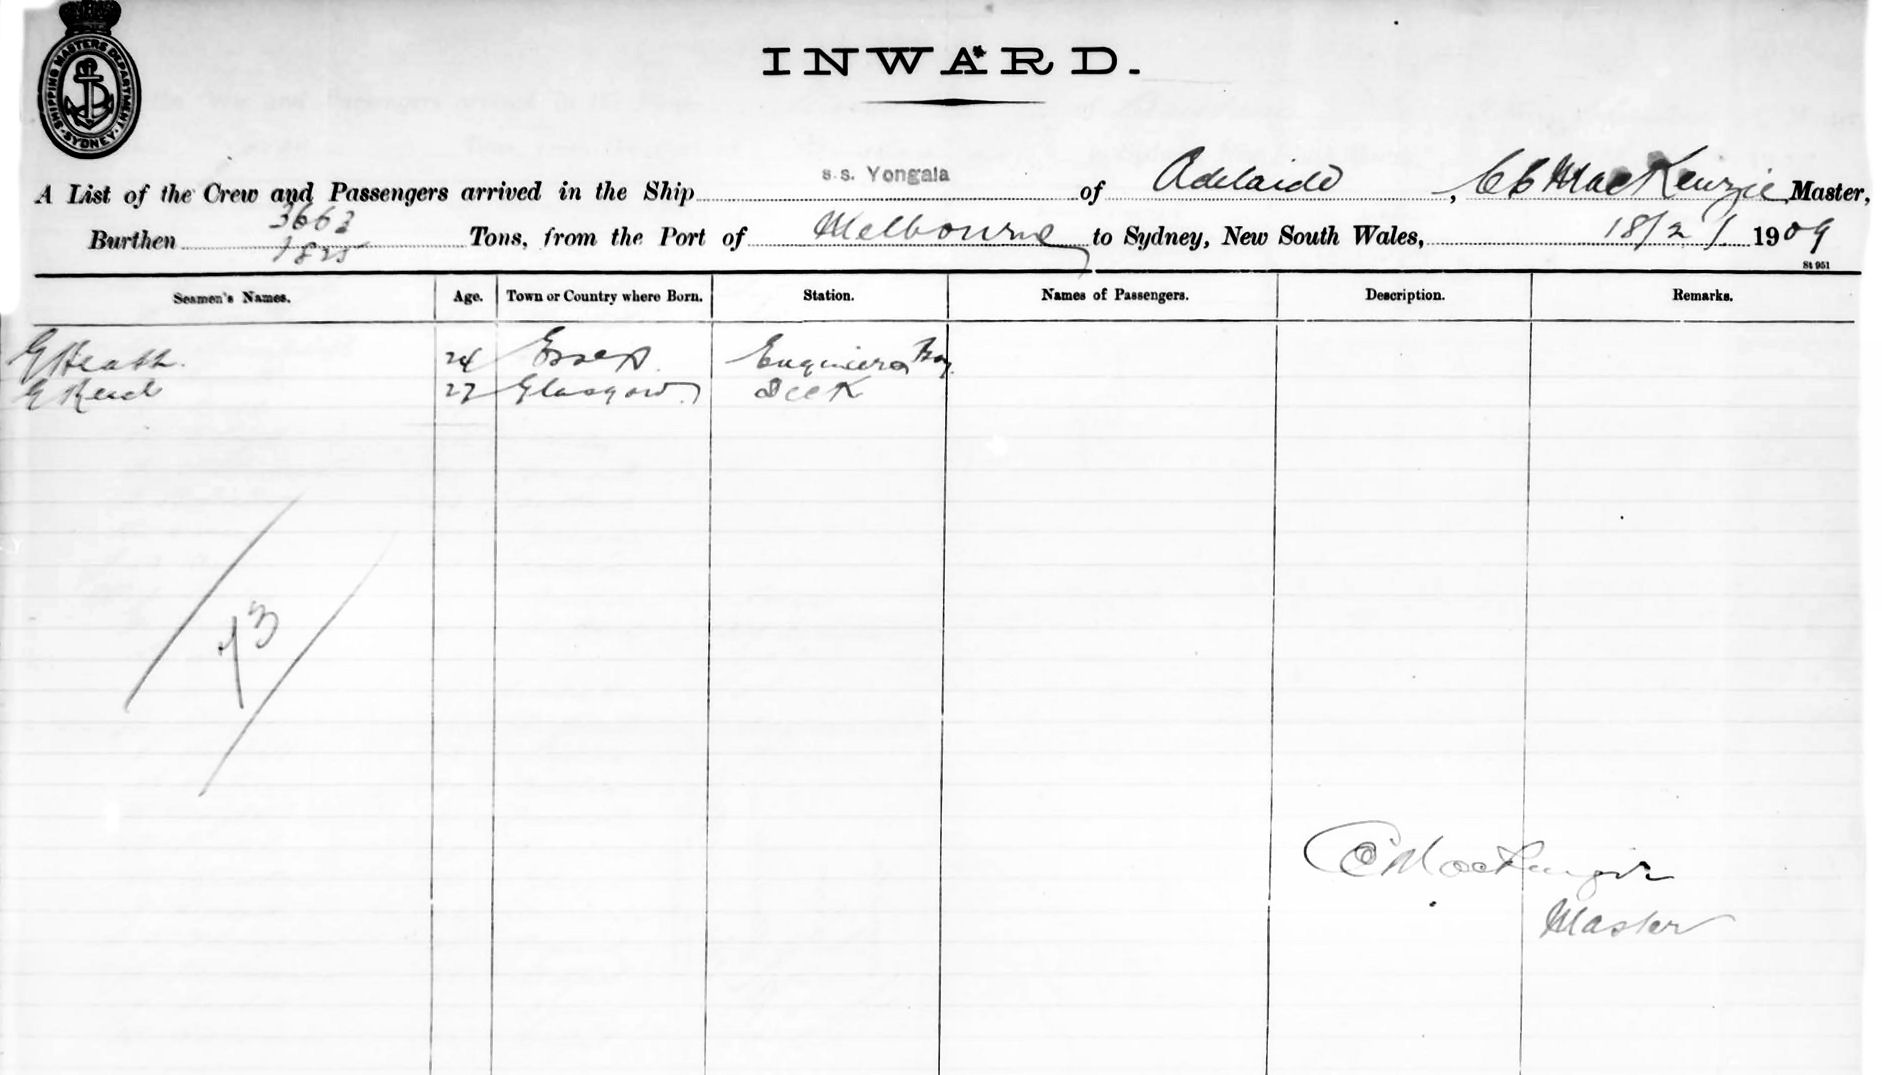 SHIPPING MASTERS DEPARTMENT
SYDNEY
INWARD.
A List of the Crew and Passengers arrived in the Ship s.s. Yongala of Adelaide, MacKenzie Master,
3663
Burthen 1825 Tons, from the Port of Melbourne to Sydney, New South Wales, 18/2/1909
St 951
Seamen's Names. Age. Town or Country where Born. Station. Names of Passengers. Description. Remarks.
G Heath. 24 Essex. Engineers
G Reid 27 Glasgow. Deck
73
MacKenzie
Master